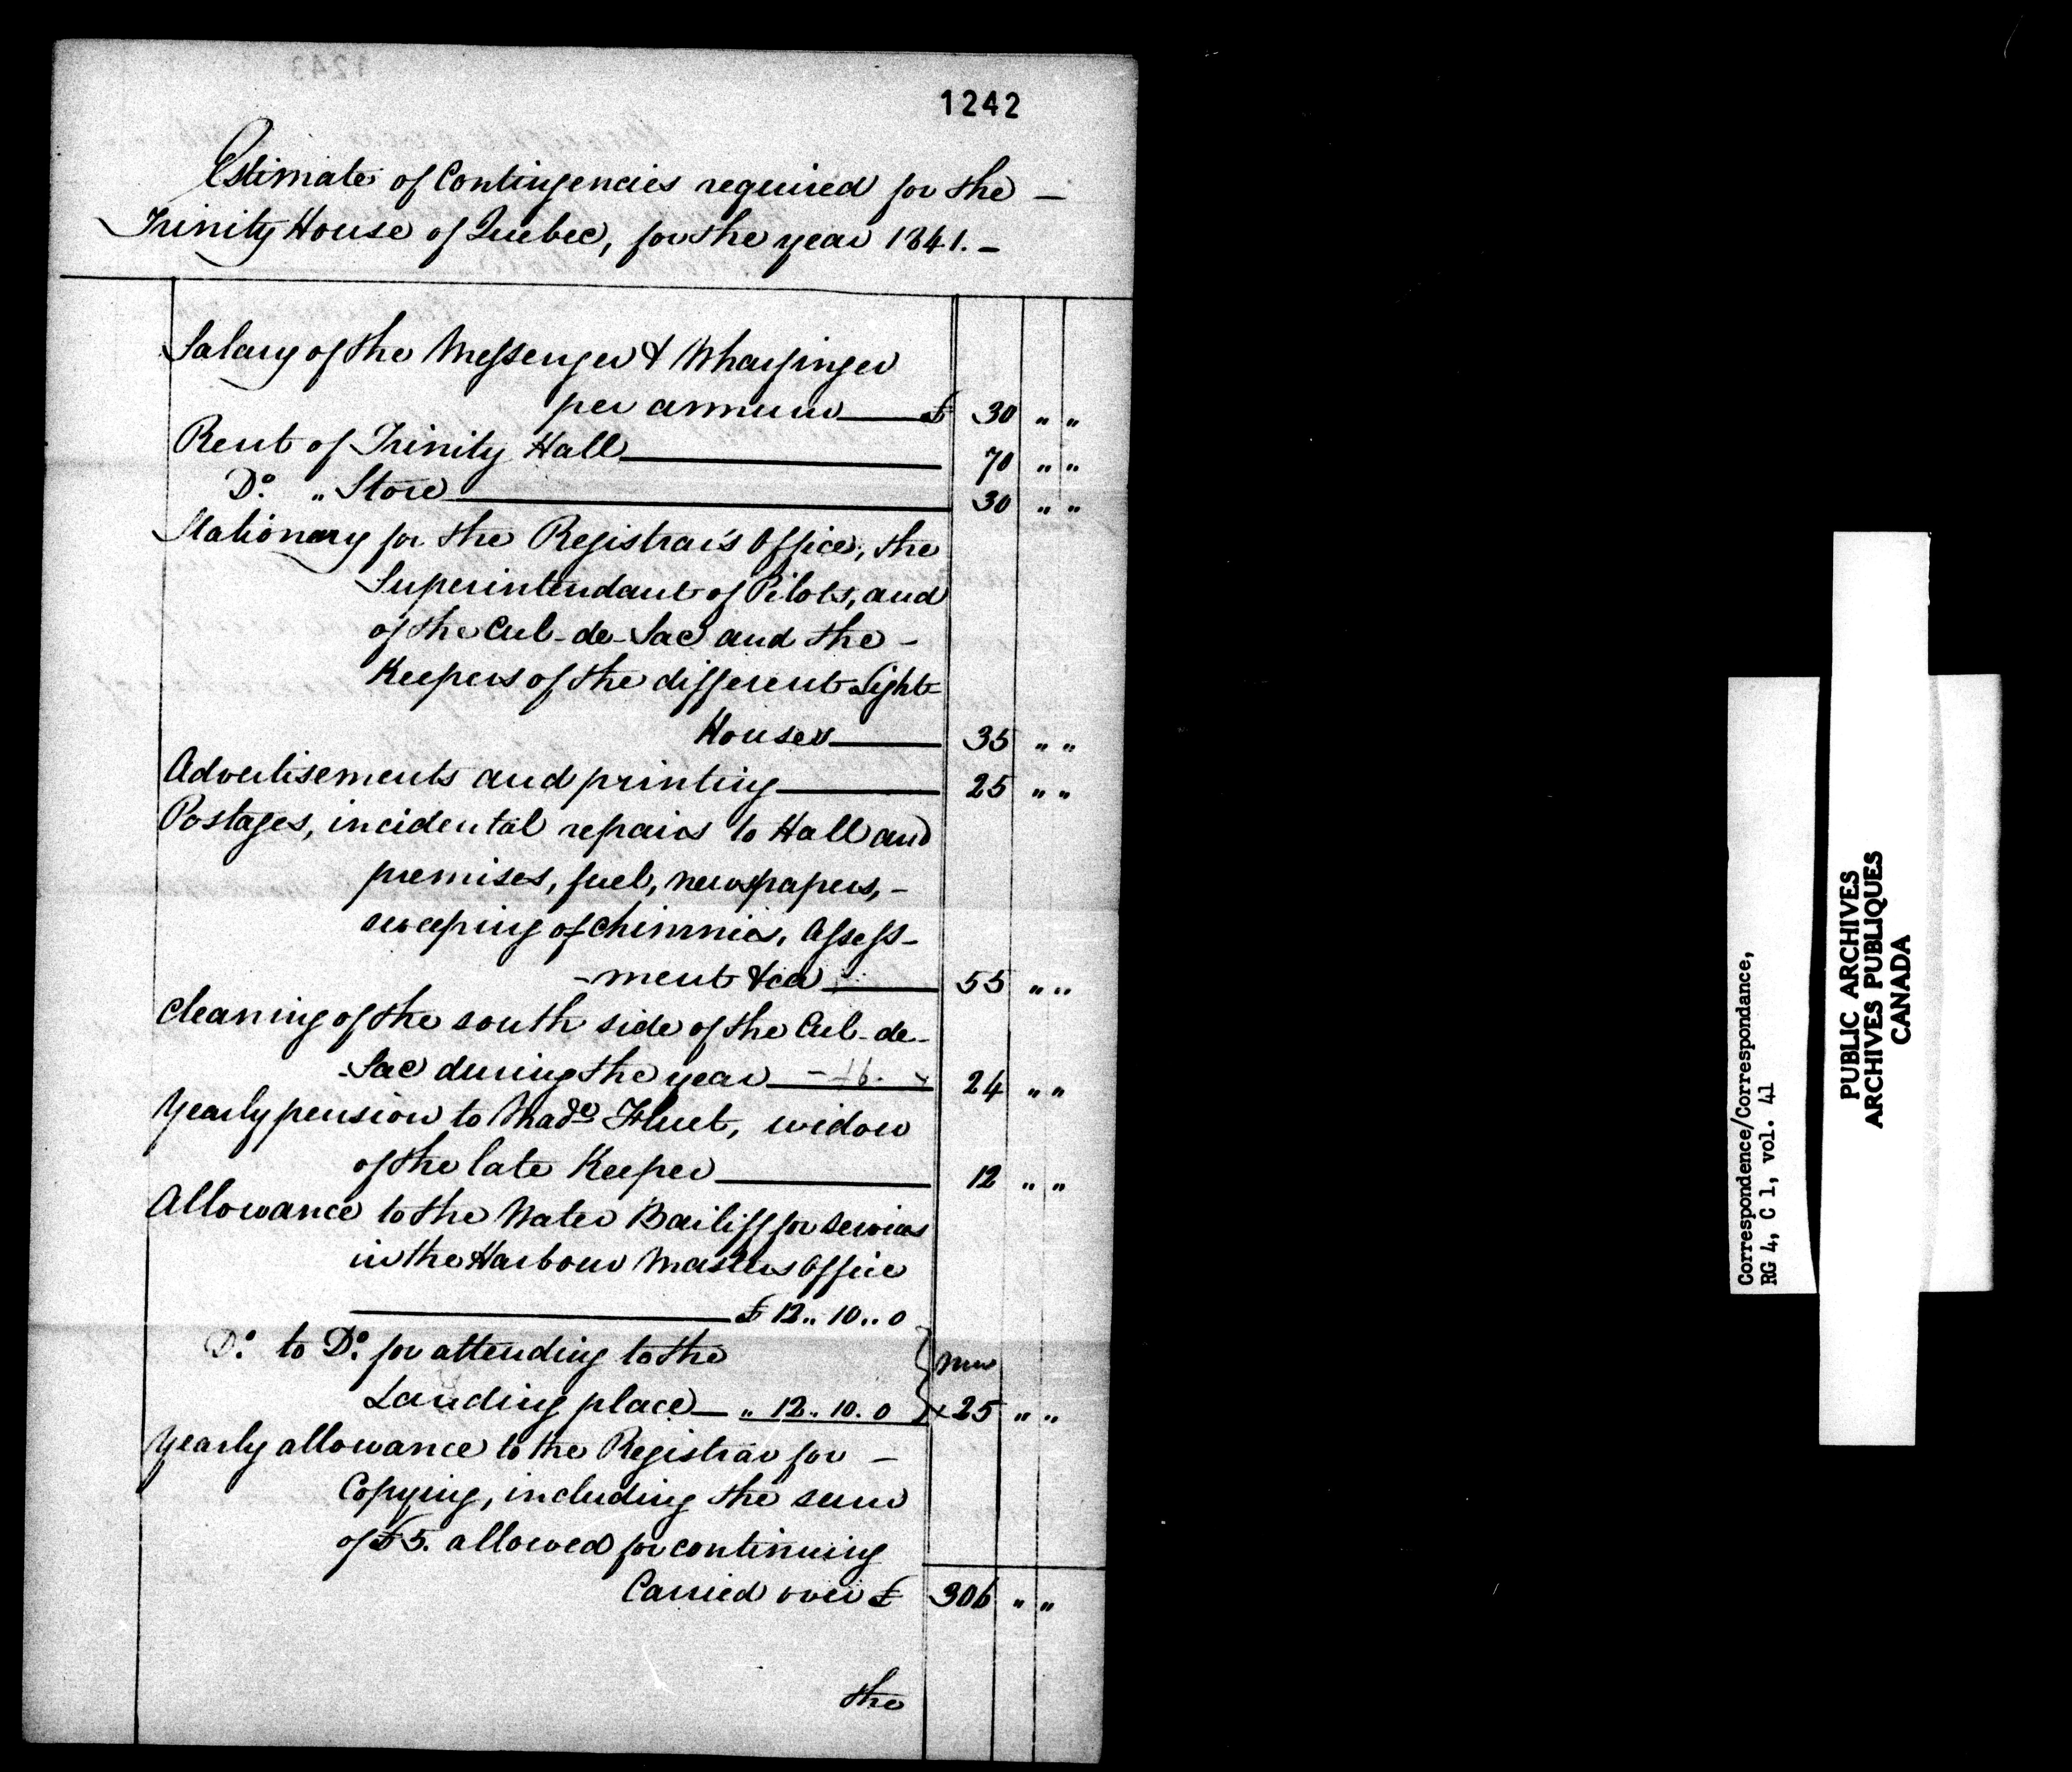 1242
Estimate of Contingencies required for the —
Trinity House of Quebec, for the year 1841. —
Salary of the Messenger & Wharfinger
per annum £ 30 " "
Rent of Trinity Hall 70 " "
Do. " Store 30 " "
Stationary for the Registrar's Office, the
Superintendant of Pilots, and
of the Cul-de-Sac and the -
Keepers of the different Light
Houses 35 " "
Advertisements and printing 25 " "
Postages, incidental repairs to Hall and
premises, fuel, newspapers, -
sweeping of chimnies, Assess-
-ment &ca 55 " "
Cleaning of the south side of the Cul-de-
-Sac during the year 24 " "
Yearly pension to Made. Huet, widow
of the late Keeper 12 " "
Allowance to the Water Bailiff for services
in the Harbour Masters Office
£ 12 .. 10 .. 0
Do. to Do. for attending to the
Landing place — " 12 .. 10 . 0 } x 25 " "
Yearly allowance to the Registrar for —
Copying, including the sum
of £5. allowed for continuing
Carried over £ 306 " "
the
Correspondence/Correspondance,
RG 4, C 1, vol. 41
PUBLIC ARCHIVES
ARCHIVES PUBLIQUES
CANADA